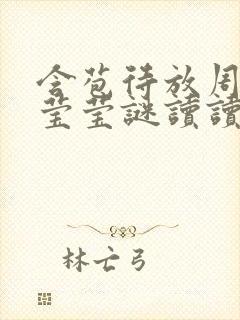 含苞待放周
莹莹謎讀讀
林亡弓